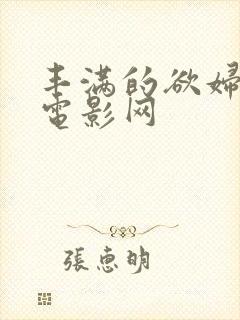 丰满的欲妇
電影网
張惠明